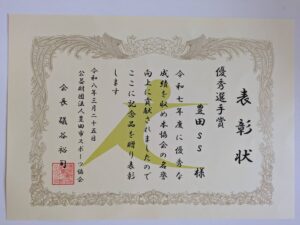 表彰状
優秀選手賞
豊田SS 様
令和七年度に優秀な
成績を収め本協会の名誉
向上に貢献されましたので
ここに記念品を贈り表彰
します
令和八年三月二十五日
公益財団法人豊田市スポーツ協会
会長 磯谷裕司